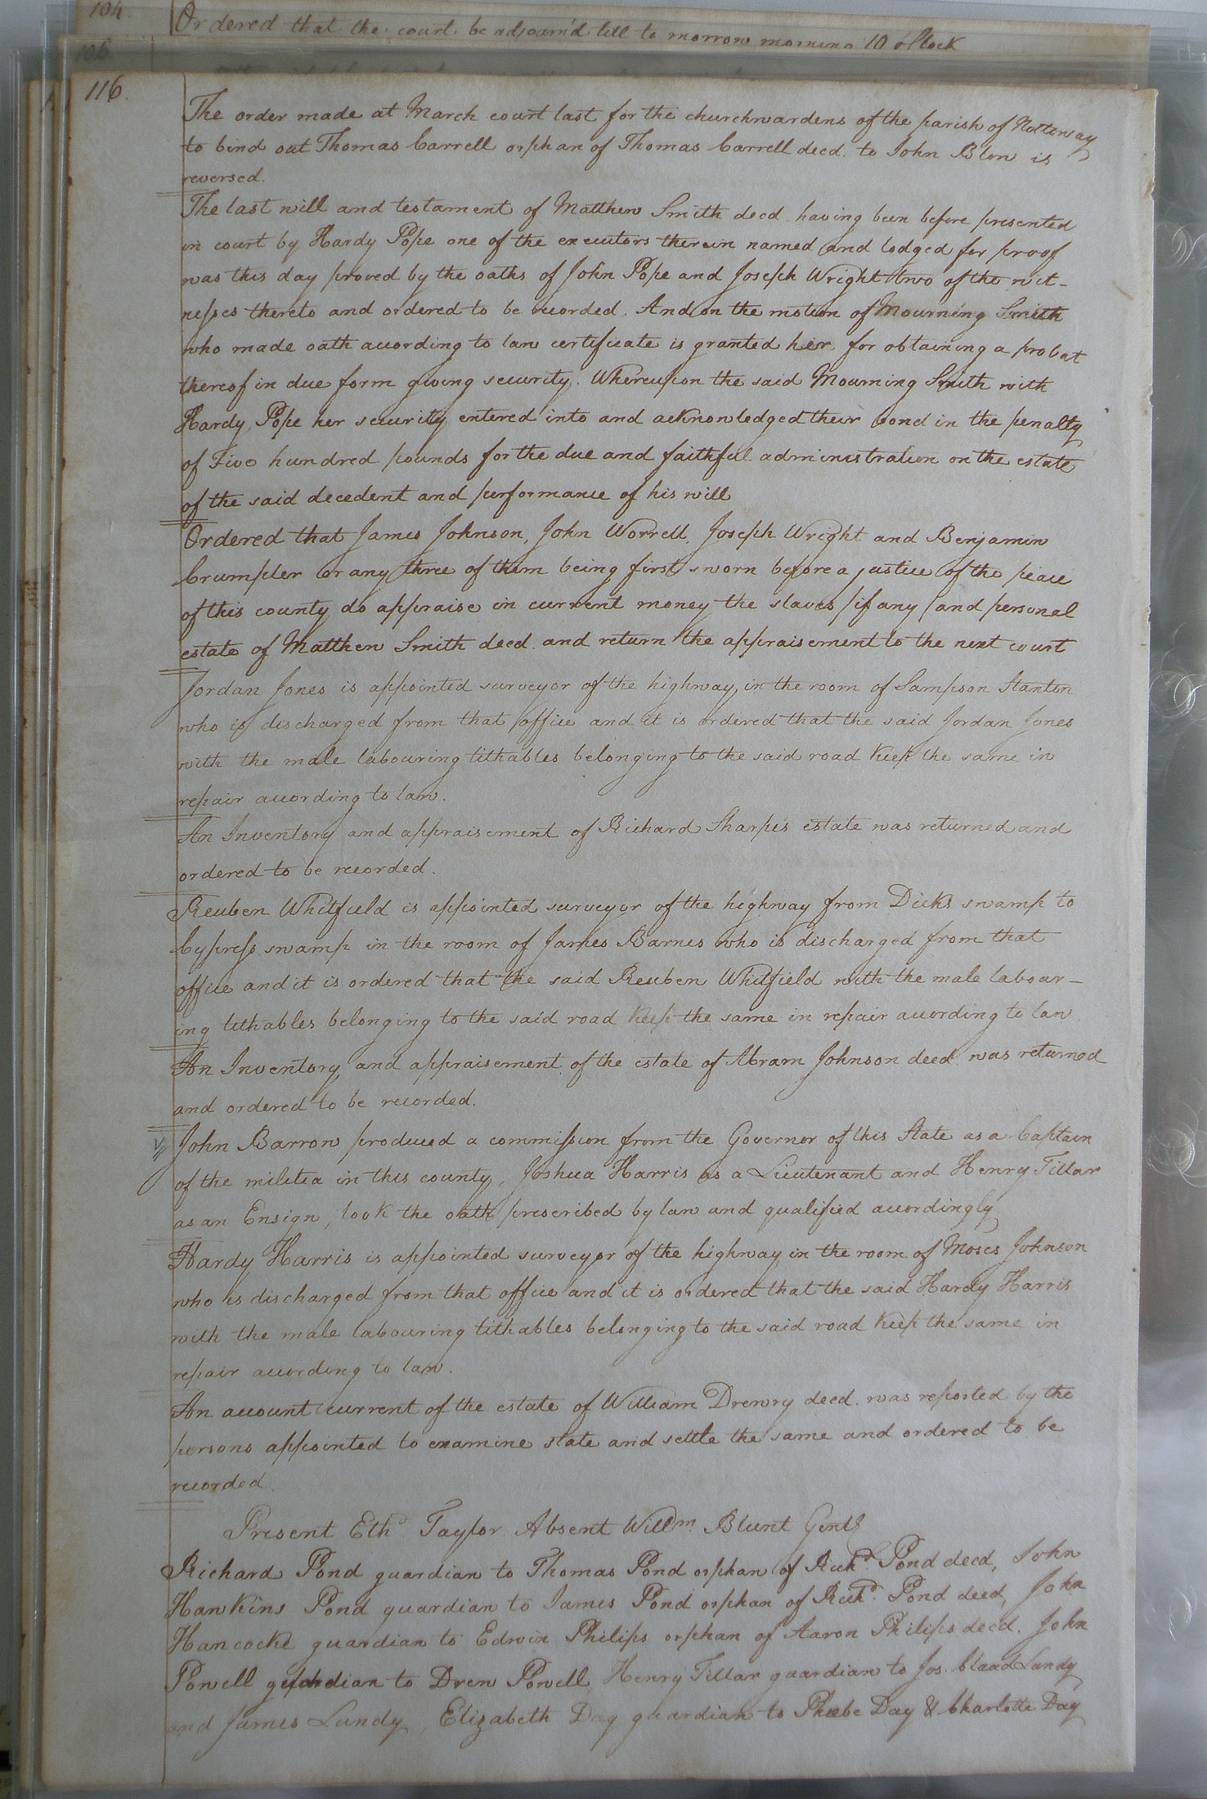 104
Ordered that the court be adjourn'd till to morrow morning 10 oClock
106
116.
The order made at March court last for the churchwardens of the parish of Nottoway
to bind out Thomas Carrell orphan of Thomas Carrell deed. to John Blow is
reversed.
The last will and testament of Matthew Smith deed. having been before presented
in court by Hardy Pope one of the executors therein named and lodged for proof
was this day proved by the oaths of John Pope and Joseph Wright two of the wit-
nesses thereto and ordered to be recorded. And on the motion of Mourning Smith
who made oath according to law certificate is granted her for obtaining a probat
thereof in due form giving security. Whereupon the said Mourning Smith with
Hardy Pope her security entered into and acknowledged their bond in the penalty
of Five hundred pounds for the due and faithful administration on the estate
of the said decedent and performance of his will
Ordered that James Johnson, John Worrell, Joseph Wright and Benjamin
Crumpler or any three of them being first sworn before a justice of the peace
of this county do appraise in current money the slaves /if any/ and personal
estate of Matthew Smith deed. and return the appraisement to the next court
Jordan Jones is appointed surveyor of the highway in the room of Sampson Stanton
who is discharged from that office and it is ordered that the said Jordan Jones
with the male labouring tithables belonging to the said road keep the same in
repair according to law.
An Inventory and appraisement of Richard Sharpe's estate was returned and
ordered to be recorded.
Reuben Whitfield is appointed surveyor of the highway from Dicks swamp to
Cypress swamp in the room of James Barnes who is discharged from that
office and it is ordered that the said Reuben Whitfield with the male labour-
ing tithables belonging to the said road keep the same in repair according to law
An Inventory and appraisement of the estate of Abram Johnson deed. was returned
and ordered to be recorded.
John Barrow produced a commission from the Governor of this State as a Captain
of the militia in this county, Joshua Harris as a Lieutenant and Henry Tillar
as an Ensign, took the oath prescribed by law and qualified accordingly
Hardy Harris is appointed surveyor of the highway in the room of Moses Johnson
who is discharged from that office and it is ordered that the said Hardy Harris
with the male labouring tithables belonging to the said road keep the same in
repair according to law.
An account current of the estate of William Drewry deed. was reported by the
persons appointed to examine state and settle the same and ordered to be
recorded.
Present Ethd. Taylor Absent Willm. Blunt Gentl
Richard Pond guardian to Thomas Pond orphan of Richd. Pond deed, John
Hawkins Pond guardian to James Pond orphan of Richd. Pond deed, John
Hancocke guardian to Edwin Philips orphan of Aaron Philips deed. John
Powell guardian to Drew Powell, Henry Tillar guardian to Jos. Lundy
and James Lundy, Elizabeth Day guardian to Phebe Day & Charlotte Day